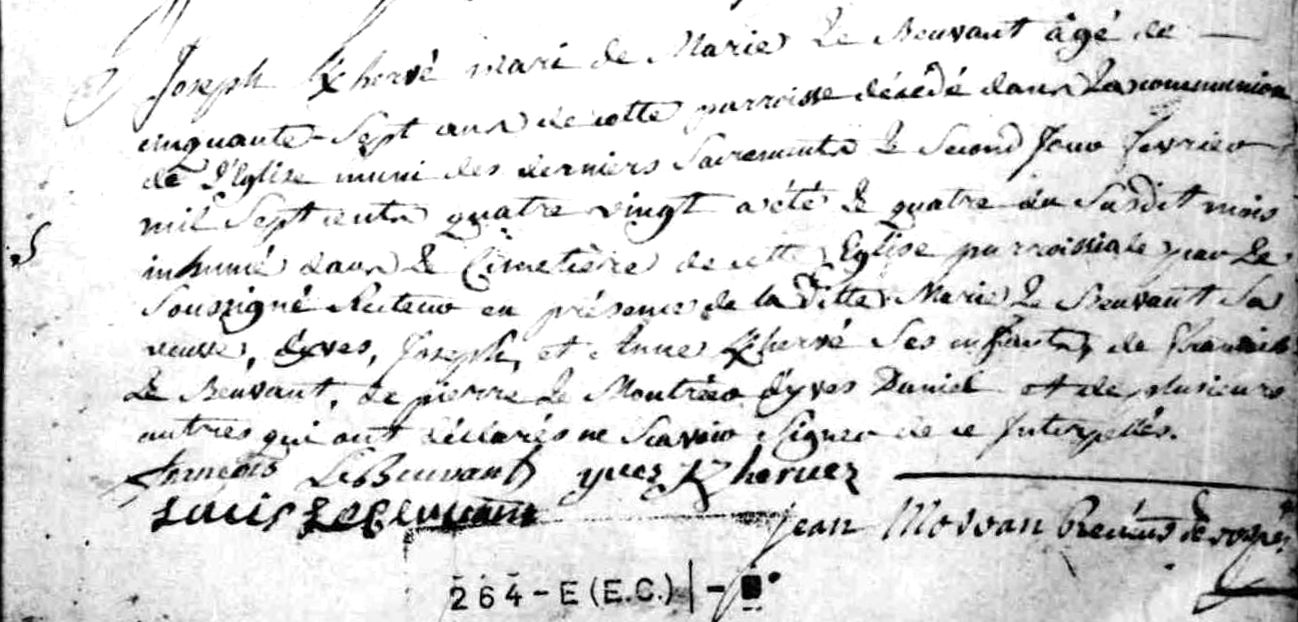 Joseph Khervé mari de Marie Le Beuvant âgé de
cinquante-Sept ans de cette parroisse décédé dans La communion
de L'Eglise muni des derniers Sacrements le Second Jour fevrier
mil Sept cents quatre vingt a été le quatre du Susdit mois
inhumé dans le Cimetière de cette Eglise parroissiale par Le
Soussigné Recteur en présence de la ditte Marie Le Beuvant Sa
veuve, d'yves, Joseph, et Anne Khervé Ses enfants, de francois
Le Beuvant, de pierre Le Montréer d'yves Daniel et de plusieurs
autres qui ont déclarés ne Scavoir Signer de ce Interpellés.
francois LeBeuvant yves K hervez
Louis
jean Morvan
S
264-E (E.C.) 1-